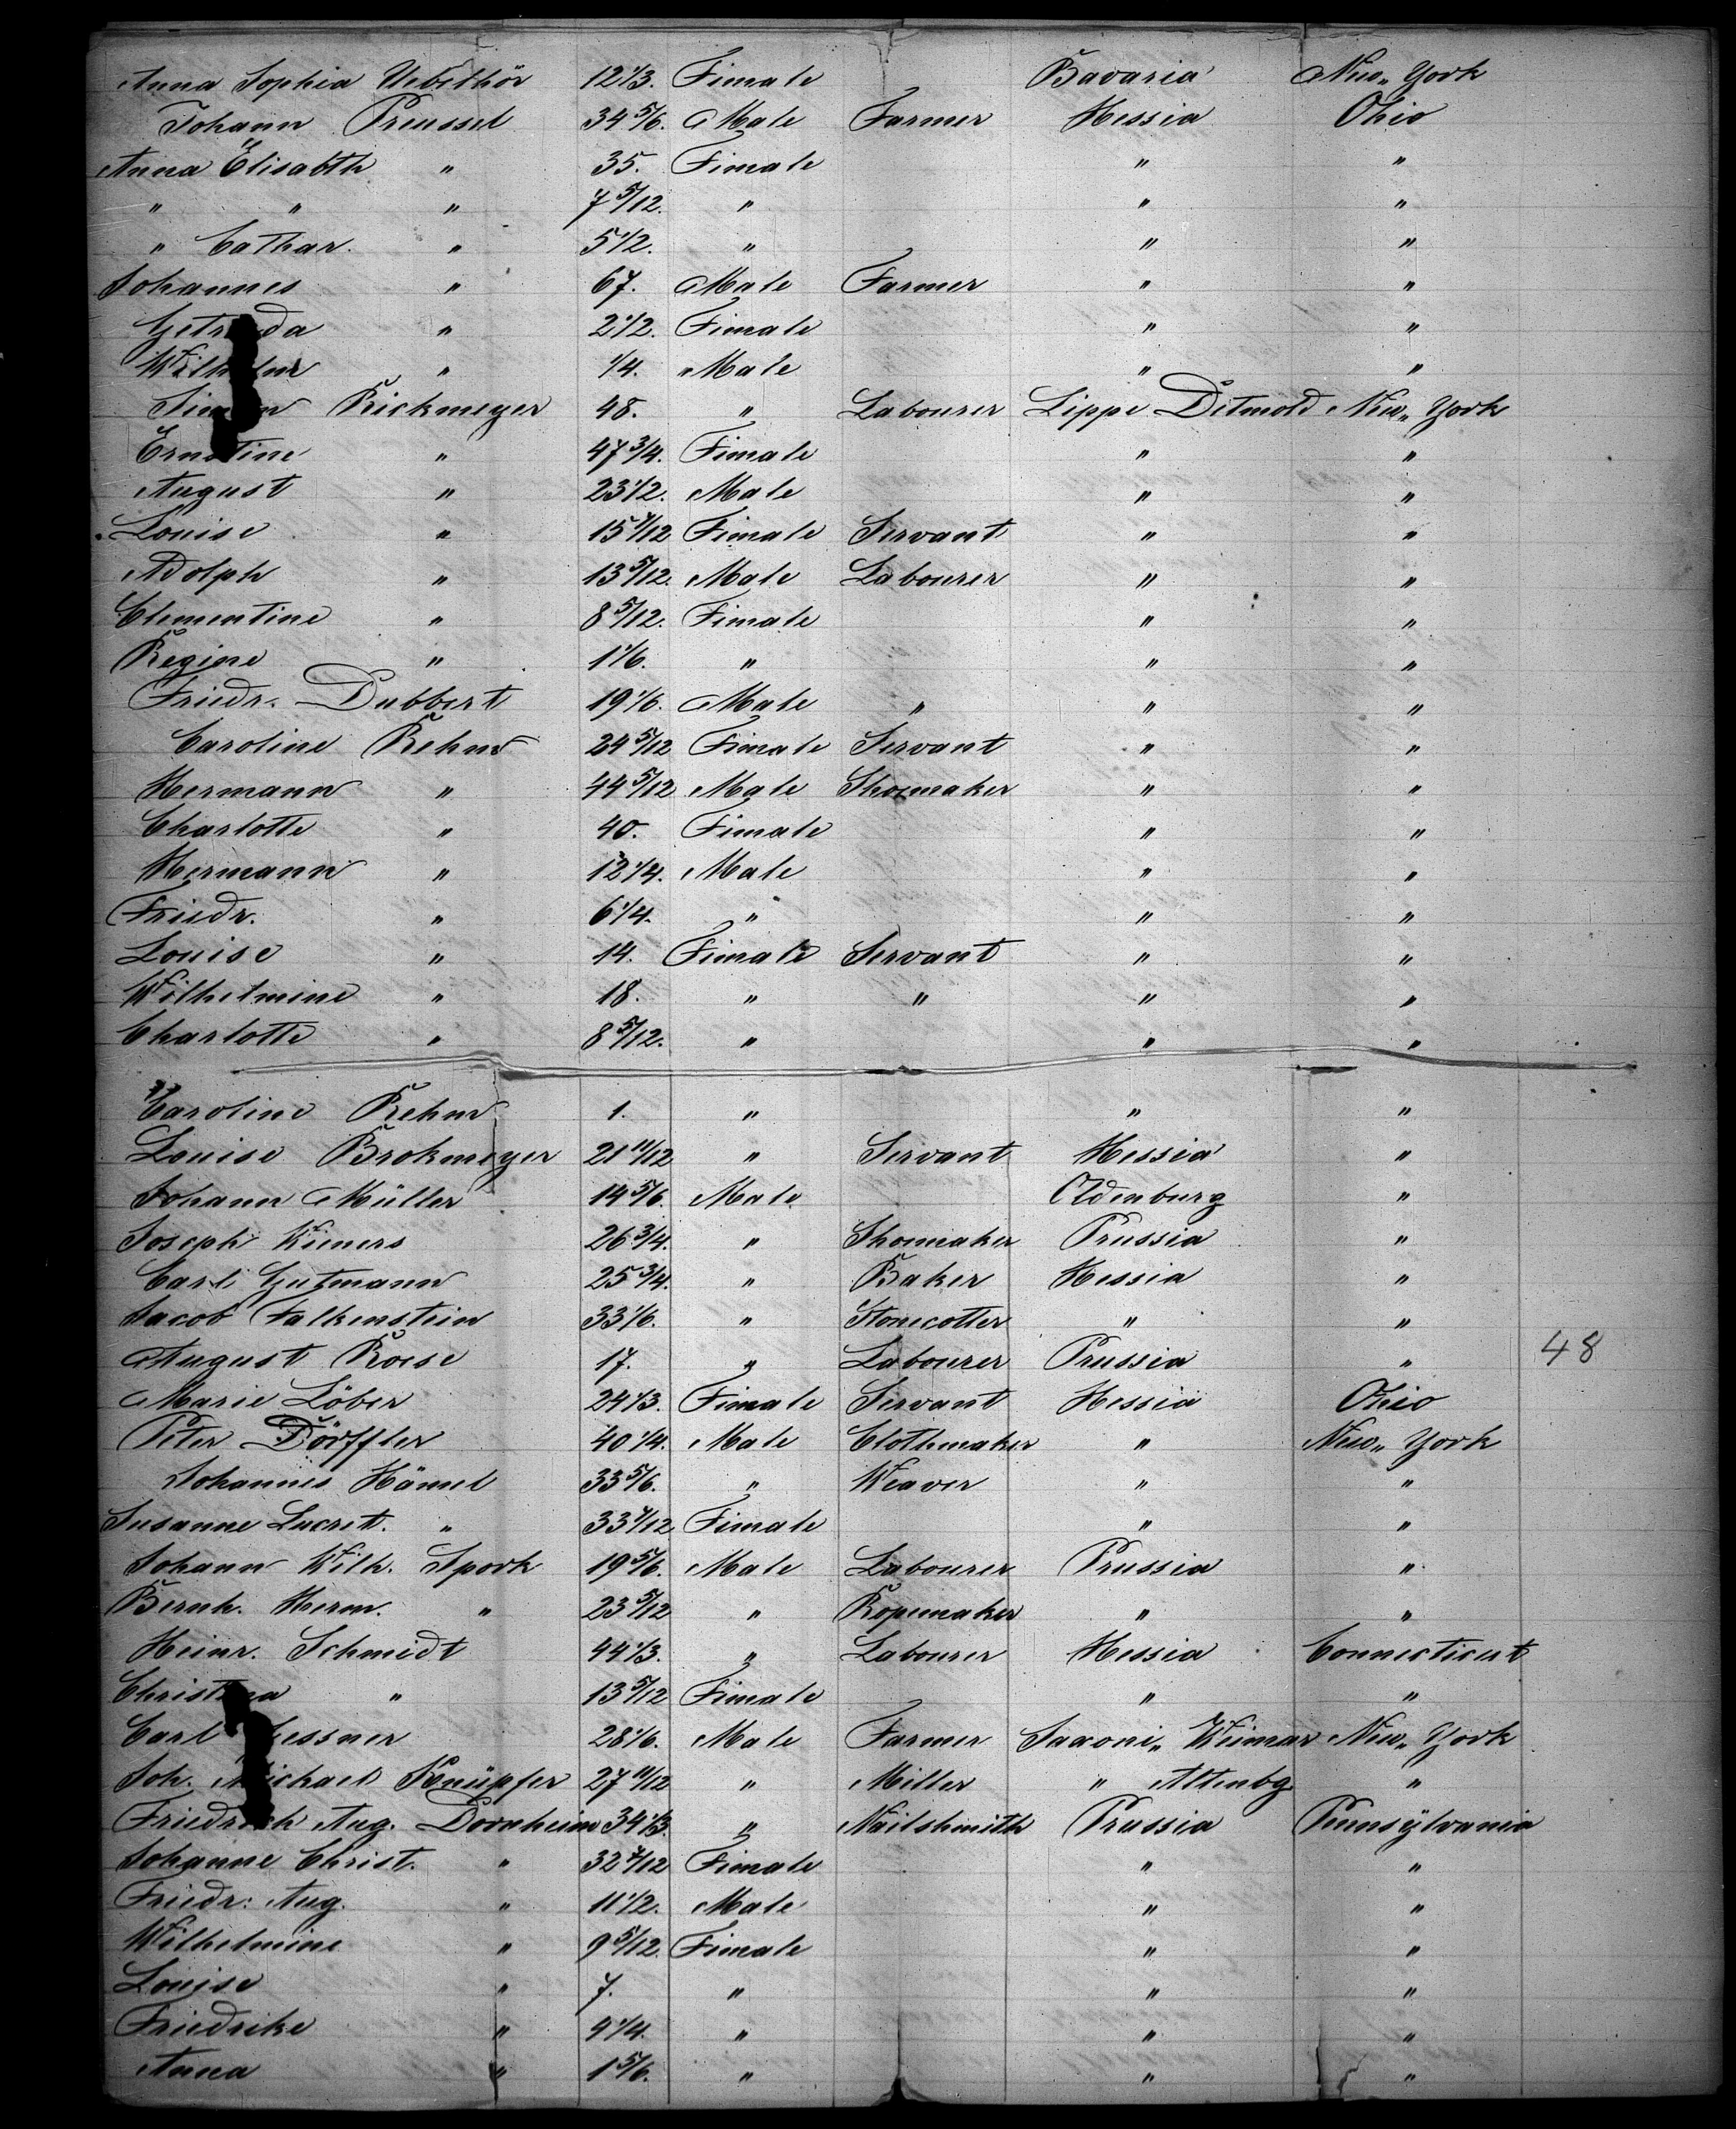 Anna Sophia Uebelhör 12 1/3. Female Bavaria New„ York
Johann Preussel 34 5/6. Male Farmer Hessia Ohio
Anna Elisabth „ 35. Female „ „
„ „ „ 7 5/12. „ „ „
„ Cathar. „ 5 1/2. „ „ „
Johannes „ 67. Male Farmer „ „
Getruda „ 2 1/2. Female „ „
Wilhelm „ 1/4. Male „ „
Simon Rickmeyer 48. „ Labourer Lippe Detmold New„ York
Ernstine „ 47 3/4. Female „ „
August „ 23 1/2. Male „ „
Louise „ 15 7/12 Female Servant „ „
Adolph „ 13 5/12. Male Labourer „ „
Clementine „ 8 5/12. Female „ „
Regine „ 1 1/6. „ „ „
Friedr. Dubbert 19 1/6. Male „ „ „
Caroline Rehm 24 5/12 Female Servant „ „
Hermann „ 44 5/12 Male Shoemaker „ „
Charlotte „ 40. Female „ „
Hermann „ 12 1/4. Male „ „
Friedr. „ 6 1/4. „ „ „
Louise „ 14. Female Servant „ „
Wilhelmine „ 18. „ „ „ „
Charlotte „ 8 5/12. „ „ „
Caroline Rehm 1. „ „ „
Louise Brokmeyer 21 11/12 „ Servant Hessia „
Johann Müller 14 5/6. Male Oldenburg „
Joseph Wieners 26 3/4. „ Shoemaker Prussia „
Carl Gutmann 25 3/4. „ Baker Hessia „
Jacob Falkenstein 33 1/6. „ Stonecotter „ „
August Roese 17. „ Labourer Prussia „ 48
Marie Löber 24 1/3. Female Servant Hessia Ohio
Peter Dörffler 40 1/4. Male Clothmaker „ New„ York
Johannes Hämel 33 5/6. „ Weaver „ „
Susanne Lucret. „ 33 7/12 Female „ „
Johann Wilh. Spork 19 5/6. Male Labourer Prussia „
Bernh. Herm. „ 23 5/12 „ Ropemaker „ „
Heinr. Schmidt 44 1/3. „ Labourer Hessia Connecticut
Christina „ 13 5/12 Female „ „
Carl 28 1/6. Male Farmer Saxoni„ Weimar New„ York
Joh. Michael Knüpfer 27 11/12 „ Miller „ Altenbg „
Friedrich Aug. Dornheim 34 1/3. „ Nailshmith Prussia Pennsÿlvania
Johanne Christ. „ 32 7/12 Female „ „
Friedr: Aug. „ 11 1/2. Male „ „
Wilhelmine „ 9 5/12. Female „ „
Louise „ 7. „ „ „
Friedrike „ 4 1/4. „ „ „
Anna „ 1 5/6. „ „ „